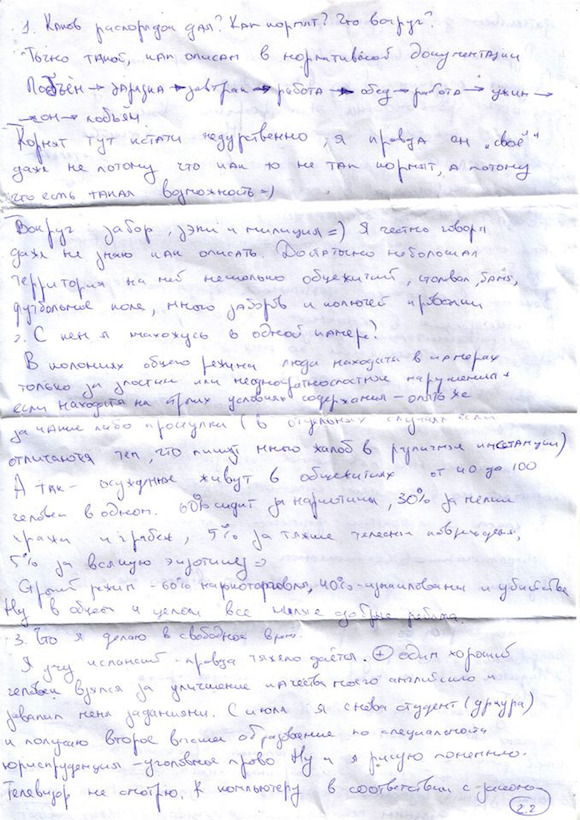 1. Каков распорядок дня? Как кормят? Что вокруг?
Точно такой, как описан в нормативной документации
Подъём → зарядка → завтрак → работа → обед → работа → ужин →
→ сон → подъём
Кормят тут кстати недурственно, я правда ем "своё"
даже не потому, что как то не так кормят, а потому
что есть такая возможность =)
Вокруг забор, зэки и милиция =) Я честно говоря
даже не знаю как описать. Достаточно небольшая
территория на ней несколько общежитий, столовая, баня,
футбольное поле, много заборов и колючей проволки
2. С кем я нахожусь в одной камере?
В колониях общего режима люди находятся в камерах
только за злостные или неоднократные нарушения
если находятся на строгих условиях содержания - опять же
за какие либо проступки (в отдельных случаях если
отличаются тем, что пишут много жалоб в различные инстанции)
А так - осужденные живут в общежитиях от 40 до 100
человек в одном. 60% сидит за наркотики, 30% за мелкие
кражи и грабеж, 5% за тяжкие телесные повреждения,
5% за всякую экзотику =)
Строгий режим - 60% наркоторговля, 40% - изнасилования и убийства
Ну в общем и целом все милые добрые ребята.
3. Что я делаю в свободное время.
Я учу испанский - правда тяжело даётся. + один хороший
человек взялся за улучшение качества моего английского и
завалил меня заданиями. С июля я снова студент (ура ура)
и получаю второе высшее образование по специальности
юриспруденция - уголовное право Ну и я рисую понемногу.
Телевизор не смотрю. К компьютеру в соответствии с законом
2.2